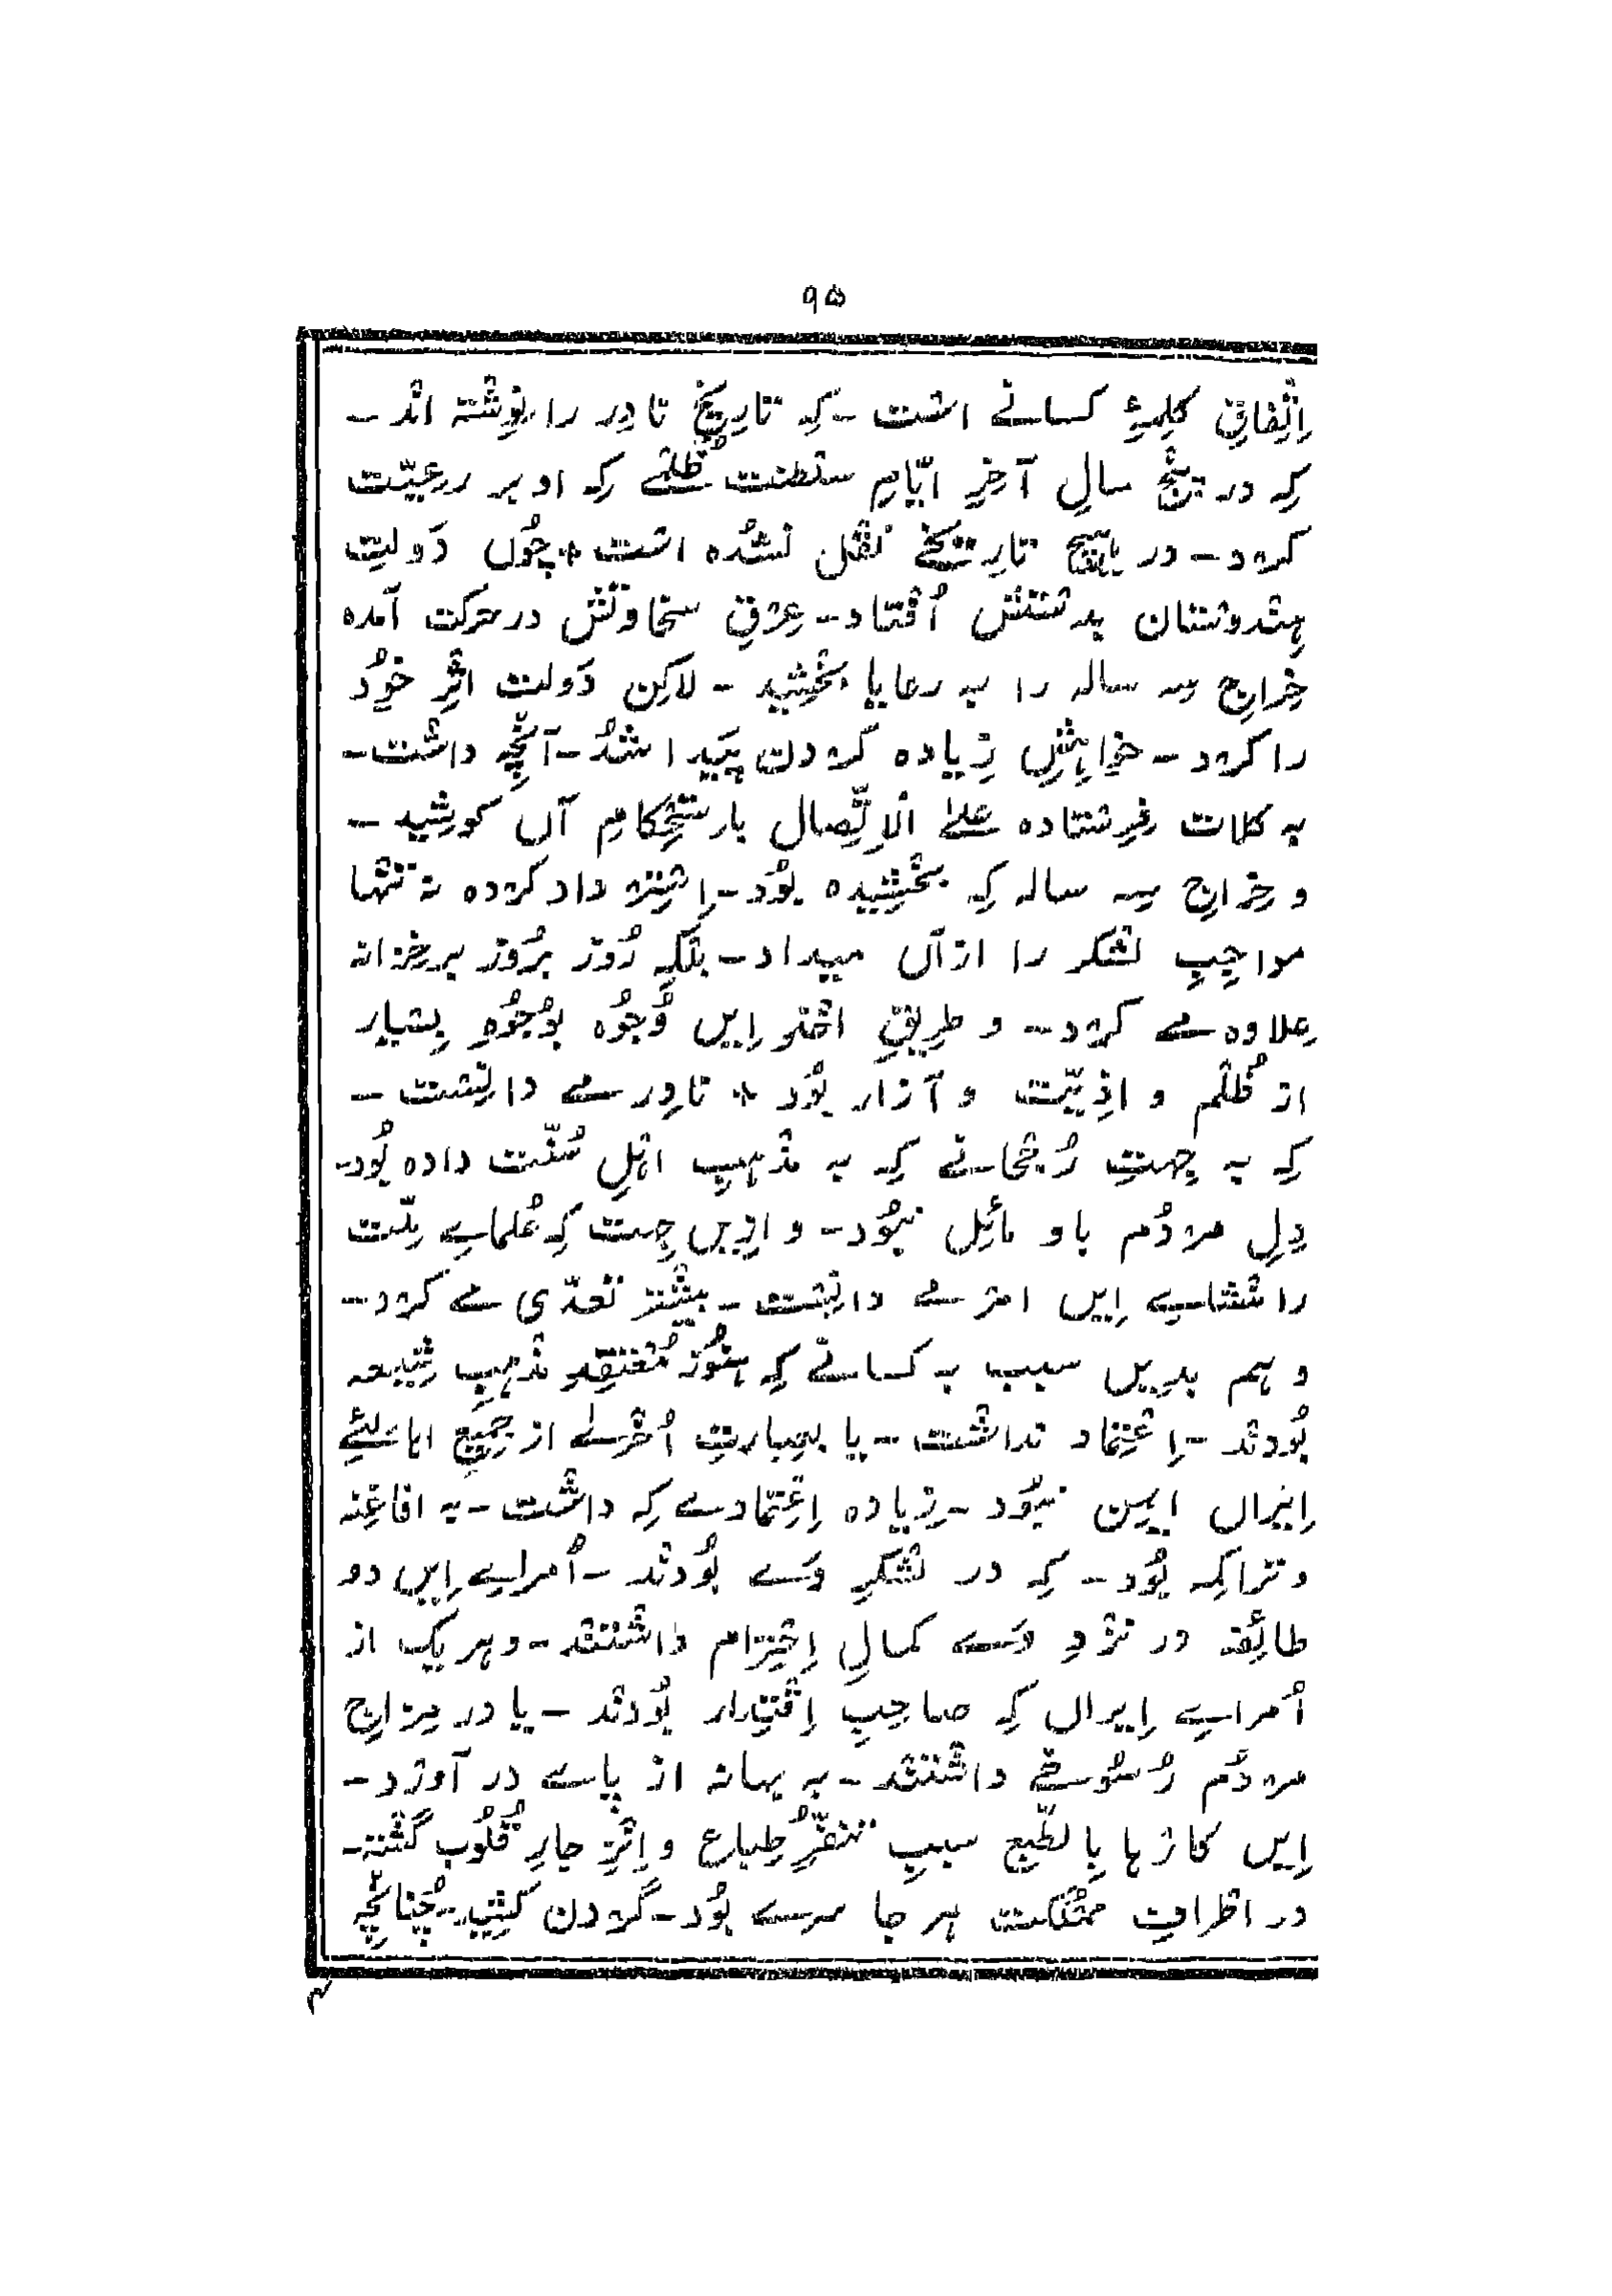 ۹۵
اِتِّفاقِ کلِیۂِ کسانے اسْت ۔ کِہ تارِیخِ نادِر را نوِشْتہ انْد ۔
کِہ در پنْج سالِ آخرِ ایّامِ سلْطنت ظُلْمے کِہ او بر رعِیّت
کرْد ۔ در ہِیچ تارِیخے نقْل نشُدہ اسْت * چُوں دَولتِ
ہِنْدوسْتان بدسْتش اُفْتاد ۔ عِرْقِ سخاوتش در حرکت آمدہ
خِراجِ سہ سالہ را بہ رعایا بخْشِید ۔ لاکِن دَولت اثرِ خوُد
را کرْد ۔ خواہِشِ زِیادہ کرْدن پَیدا شُد ۔ آنْچِہ داشْت ۔
بہ کلات فرِسْتادہ علےٰ الْاِتِّصال باِسْتِحْکامِ آں کوشِید ۔
و خِراجِ سہ سالہ کِہ بخْشِیدہ بُود ۔ اِسْتِرْداد کرْدہ نہ تنْہا
مواجِبِ لشْکر را ازآں میداد ۔ بلْکِہ رُوز برُوز برخزانہ
عِلاوہ مے کرْد ۔ و طرِیقِ اخْذِ اِیں وُجُوہ بوُجُوہِ بِسْیار
از ظُلْم و اذِیّت و آزار بُود * نادِر مے دانِسْت ۔
کِہ بہ جِہتِ رُجْحانے کِہ بہ مذْہبِ اہْلِ سُنّت دادہ بُود ۔
دِلِ مرْدُم باو مائِل نبُود ۔ و ازِیں جِہت کِہ عُلماے مِلّت
را منْشاے اِیں امْر مے دانِسْت ۔ بیشْتر تعدّی مے کرْد ۔
و ہم بدِیں سبب بہ کسانے کِہ ہنُوز مُعْتقِدِ مذْہبِ شِیعہ
بُودنْد ۔ اِعْتِماد نداشْت ۔ یا بعِبارتِ اُخْرےٰ از جمِیعِ اہالئے
اِیراں ایمن نبُود ۔ زِیادہ اِعْتِمادے کِہ داشْت ۔ بہ افاغِنہ
و تراکمہ بُود ۔ کِہ در لشْکرِ وَے بُودنْد ۔ اُمراے اِیں دو
طائِفہ در نزْدِ وَے کمالِ اِحْتِرام داشْتنْد ۔ و ہر یک از
اُمراے اِیراں کِہ صاحِبِ اِقْتِدار بُودنْد ۔ یا در مِزاجِ
مرْدُم رُسُوخے داشْتنْد ۔ بہ بہانہ از پاے در آورْد ۔
اِیں کارْہا بِالطّبع سببِ تنفّرِ طِباع و اِنْزِجارِ قُلُوب گشْتہ ۔
در اطْرافِ ممْلکت ہر جا سرے بُود ۔ گرْدن کشِید ۔ چُنانْچِہ